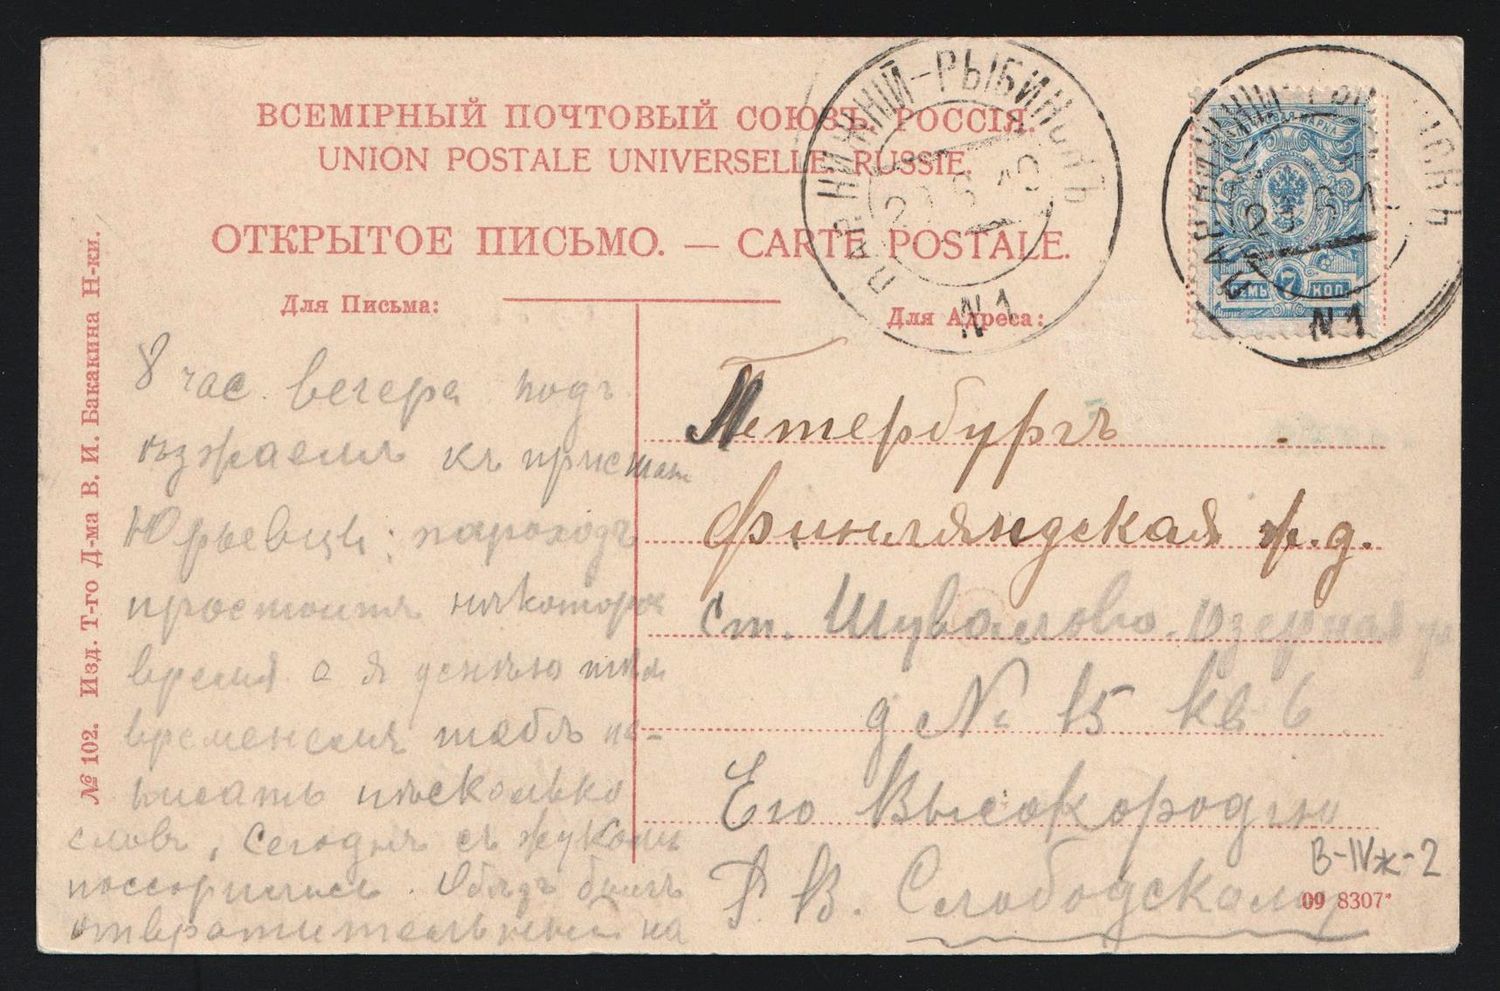 ВСЕМІРНЫЙ ПОЧТОВЫЙ СОЮЗЪ. РОССІЯ.
UNION POSTALE UNIVERSELLE RUSSIE.
ОТКРЫТОЕ ПИСЬМО. — CARTE POSTALE.
Для Письма:
Для Адреса:
ПАР. НИЖНІЙ-РЫБИНСКЪ
29 6 10
N 1
ПАР. НИЖНІЙ-РЫБИНСКЪ
29 6 1
N 1
СЕМЬ 7 КОП.
№ 102. Изд. Т-го Д-ма В. И. Бакакина Н-ки.
8 час вечера подъ
ѣзжаемъ къ пристан
Юрьевцы; пароходъ
простоитъ нѣкоторое
время а я успѣю тѣм
временемъ тебѣ на-
писать нѣсколько
словъ, Сегодня съ Жукомъ
поссорились. Обѣдъ былъ
отвратительный на
Петербургъ
Финляндская ж.д.
ст. Шувалово. Озерная
д № 15 кв 6
Его Высокородію
В. Слободскому
В-IVж-2
09 8307